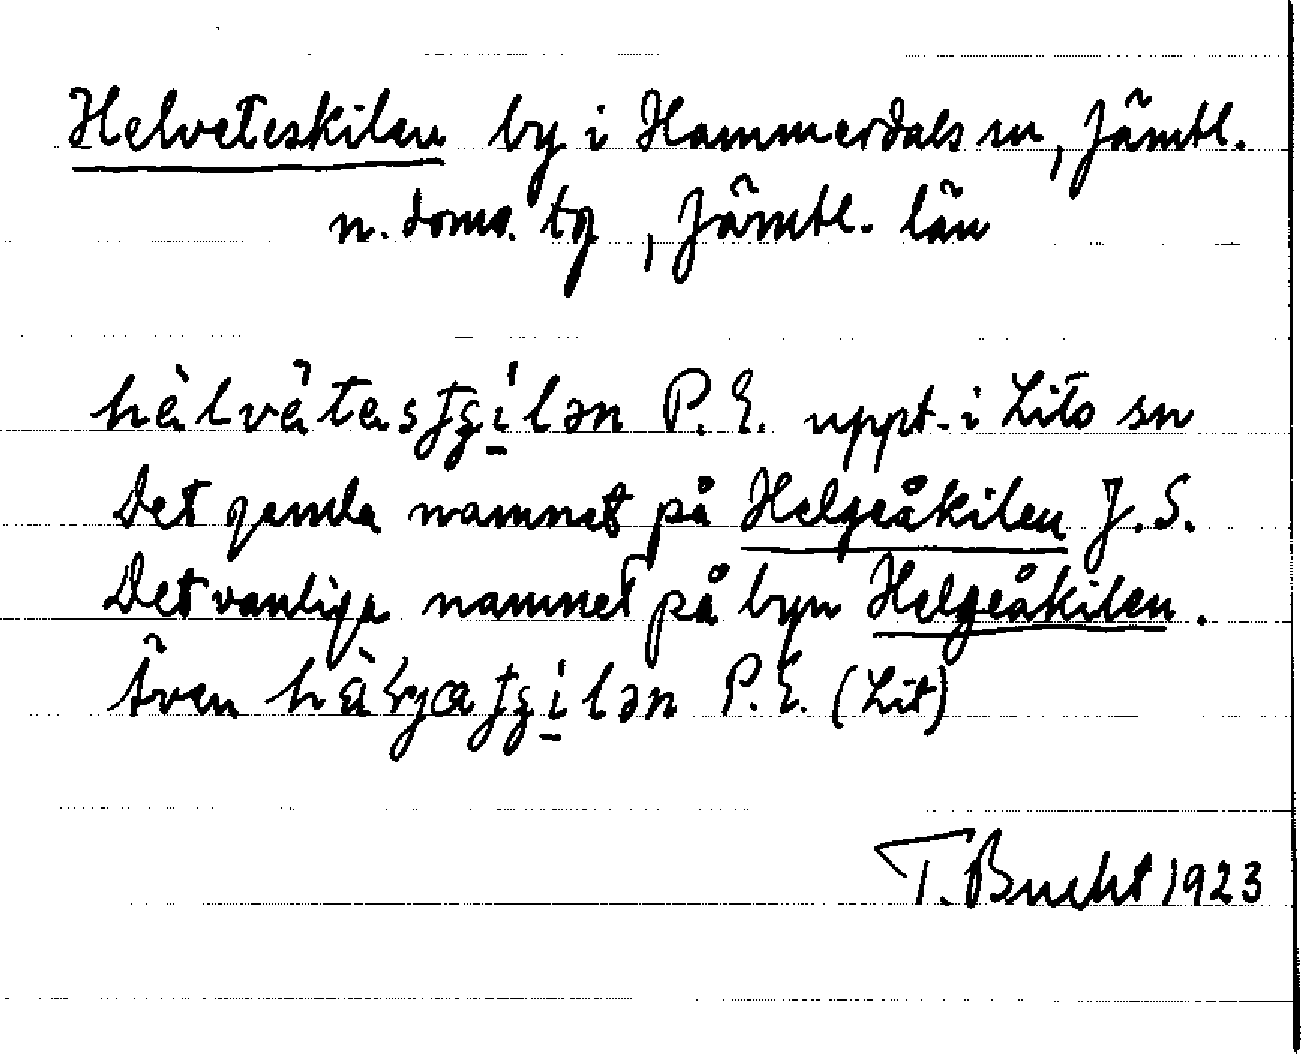 Helveteskilen by i Hammerdals sn, Jämtl.
n. doms. tg, Jämtl. län
hàlvä̀tasʈʂi̱lən P. E. uppt. i Lits sn
Det gamla namnet på Helgeåkilen J. S.
Det vanliga namnet på byn Helgeåkilen.
Även P. E. (Lit)
T. Bucht 1923